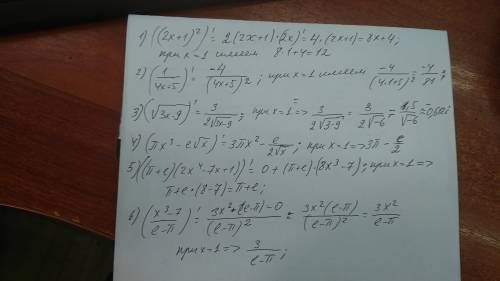 1) ((2x+1)²)' = 2(2x+1)·(2x)' = 4·(2x+1) = 8x+4;
при x=1 имеем 8·1+4=12
2) (1/(4x+5))' = -4/(4x+5)²; при x=1 имеем -4/(4·1+5)² = -4/81;
3) (√(3x-9))' = 3/(2√(3x-9)); при x=1 => 3/(2√(3-9)) = 3/(2√-6) = 1,5/√-6
4) (πx³ - e√x)' = 3πx² - e/(2√x); при x=1 => 3π - e/2
5) ((π+e)(2x⁴-7x+1))' = 0+(π+e)·(8x³-7); при x=1 =>
π+e·(8-7)=π+e;
6) ((x³-7)/(e-π))' = (3x²·(e-π)-0)/(e-π)² = 3x²(e-π)/(e-π)² = 3x²/(e-π)
при x=1 => 3/(e-π);